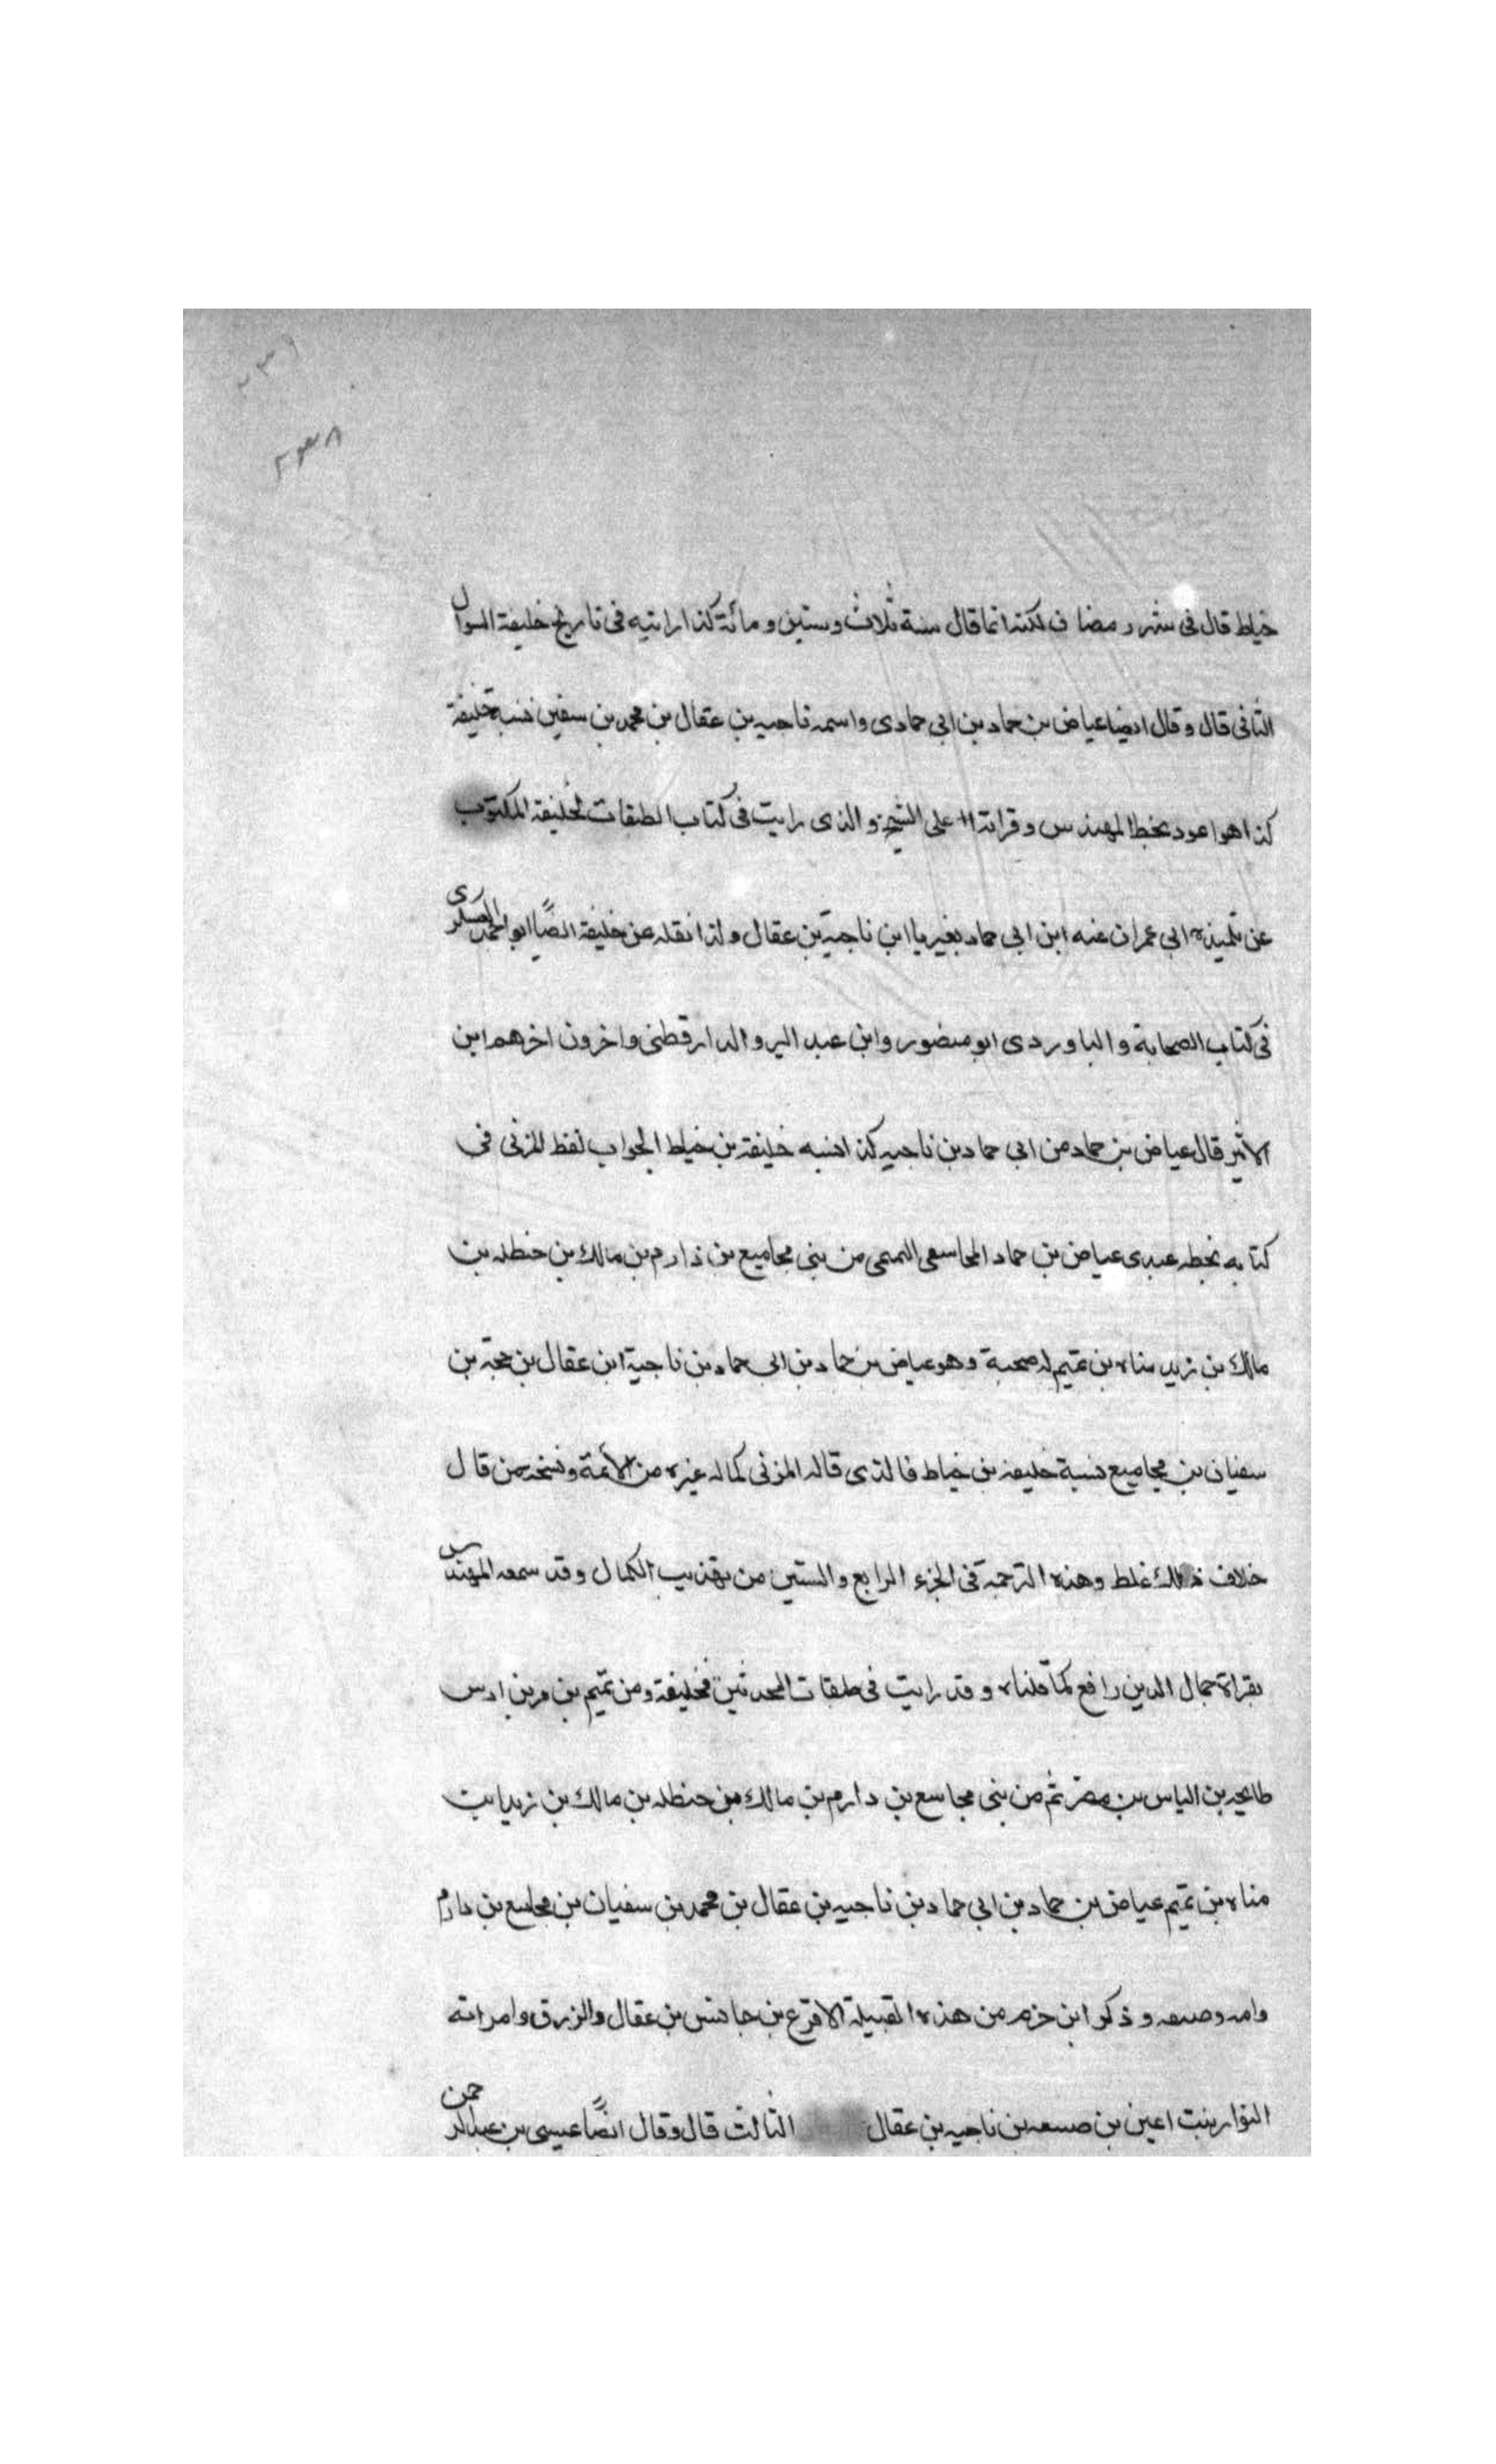 ٢٣٩
٢٣٨
خياط قال فى شهر رمضان لكنه انما قال سنة ثلاث وستين ومائة كذا رايته فى تاريخ خليفة السوال
الثانى قال وقال ايضا عياض بن حماد بن ابى حمادى واسمه ناجيه بن عقال بن محمد بن سفين نسبه خليفة
كذا هو مجود بخط المهندس وقراته على الشيخ والذى رايت فى كتاب الطبقات لخليفة المكتوب
عن تلميذه ابى عمران عنه ابن ابى حماد بغير يا ابن ناجية بن عقال ولذا نقله عن خليفة ايضًا ابو احمد العسكرى
فى كتاب الصحابة والباوردى ابو منصور وابن عبد البر والدارقطنى واخرون اخرهم ابن
الاثير قال عياض بن حماد من ابى حماد بن ناجيه كذا نسبه خليفة بن خياط الجواب لفظ المزنى فى
كتابه بخطه عندى عياض بن حماد المجاسعى التميمى من بنى مجاميع بن ذارم بن مالك بن حنظله بن
مالك بن زيد مناه بن تميم له صحبة وهو عياض بن حماد بن ابى حماد بن ناجية ابن عقال بن محمد بن
سفيان بن مجاميع نسبة خليفه بن خياط فالذى قاله المزنى كما له غيره من الأئمة ونسخه من قال
خلاف ذلك غلط وهذه الترجمة فى الجزء الرابع والستين من تهذيب الكمال وقد سمعه المهندس
بقراة جمال الدين رافع كما قلناه وقد رايت فى طبقات المحدثين لخليفة ومن تميم بن مر بن ادس
طابحه بن الياس بن مضر ثم من بنى مجاسع بن دارم بن مالك بن حنظله بن مالك بن زيد ابن
مناه بن تميم عياض بن حماد بن ابى حماد بن ناجيه بن عقال بن محمد بن سفيان بن مجاسع بن دارم
وامه وصيفه وذكر ابن حزم من هذه القبيلة الاقرع بن حابس بن عقال والزرق وامراته
النوار بنت اعين بن صسعه بن ناجيه بن عقال الثالث قال وقال ايضًا عيسى بن عبد الرحمن